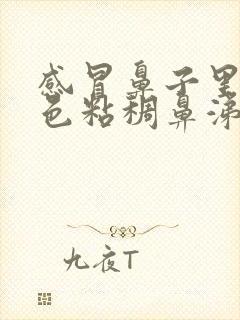 感冒鼻子里
色粘稠鼻涕
九夜T